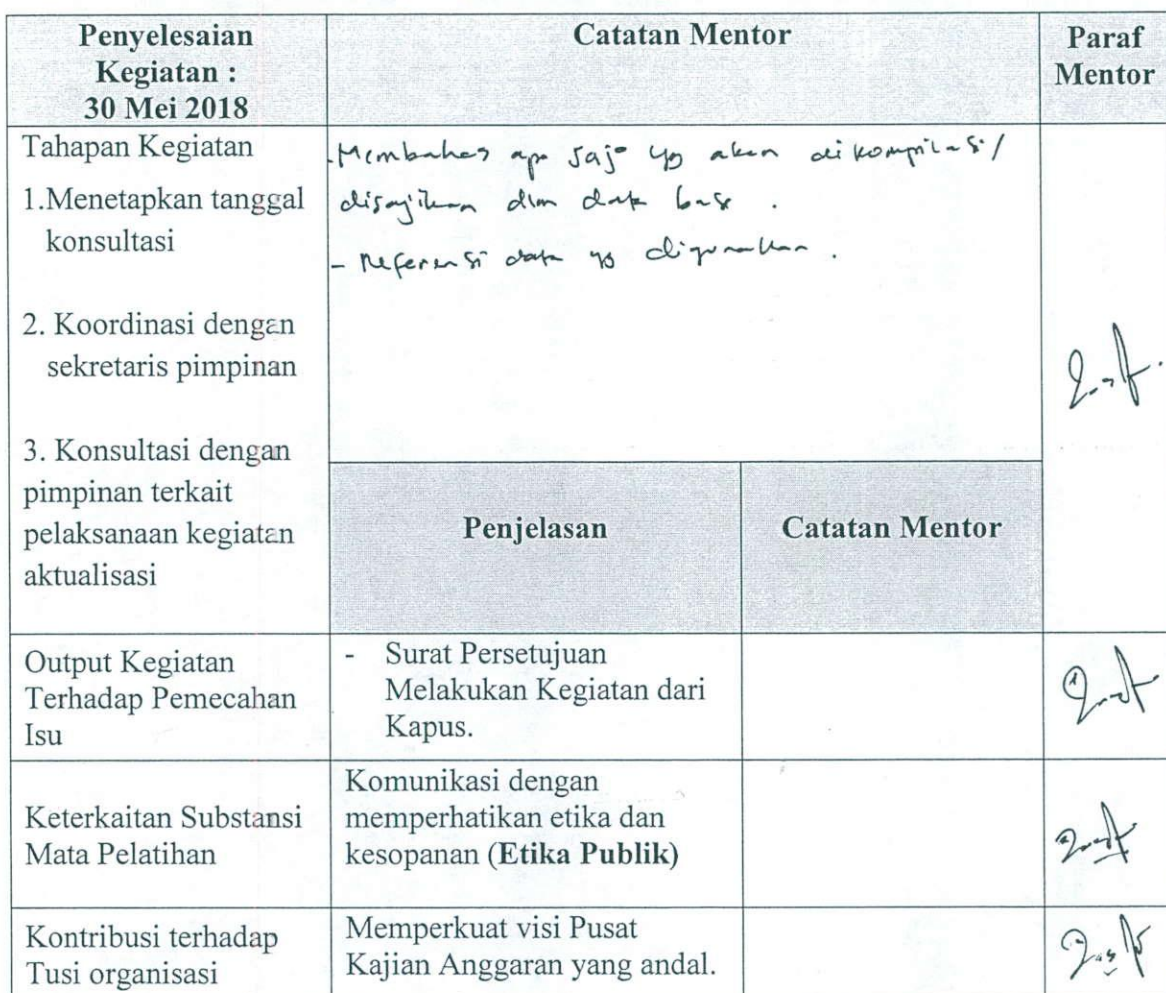 Penyelesaian
Kegiatan :
30 Mei 2018
Catatan Mentor
Paraf
Mentor
Tahapan Kegiatan
1.Menetapkan tanggal
konsultasi
2. Koordinasi dengan
sekretaris pimpinan
3. Konsultasi dengan
pimpinan terkait
pelaksanaan kegiatan
aktualisasi
-Membahas apa saja yg akan dikompilasi/
disajikan dlm data base .
- Referensi data yg digunakan .
Penjelasan
Catatan Mentor
Output Kegiatan
Terhadap Pemecahan
Isu
- Surat Persetujuan
Melakukan Kegiatan dari
Kapus.
Keterkaitan Substansi
Mata Pelatihan
Komunikasi dengan
memperhatikan etika dan
kesopanan (Etika Publik)
Kontribusi terhadap
Tusi organisasi
Memperkuat visi Pusat
Kajian Anggaran yang andal.